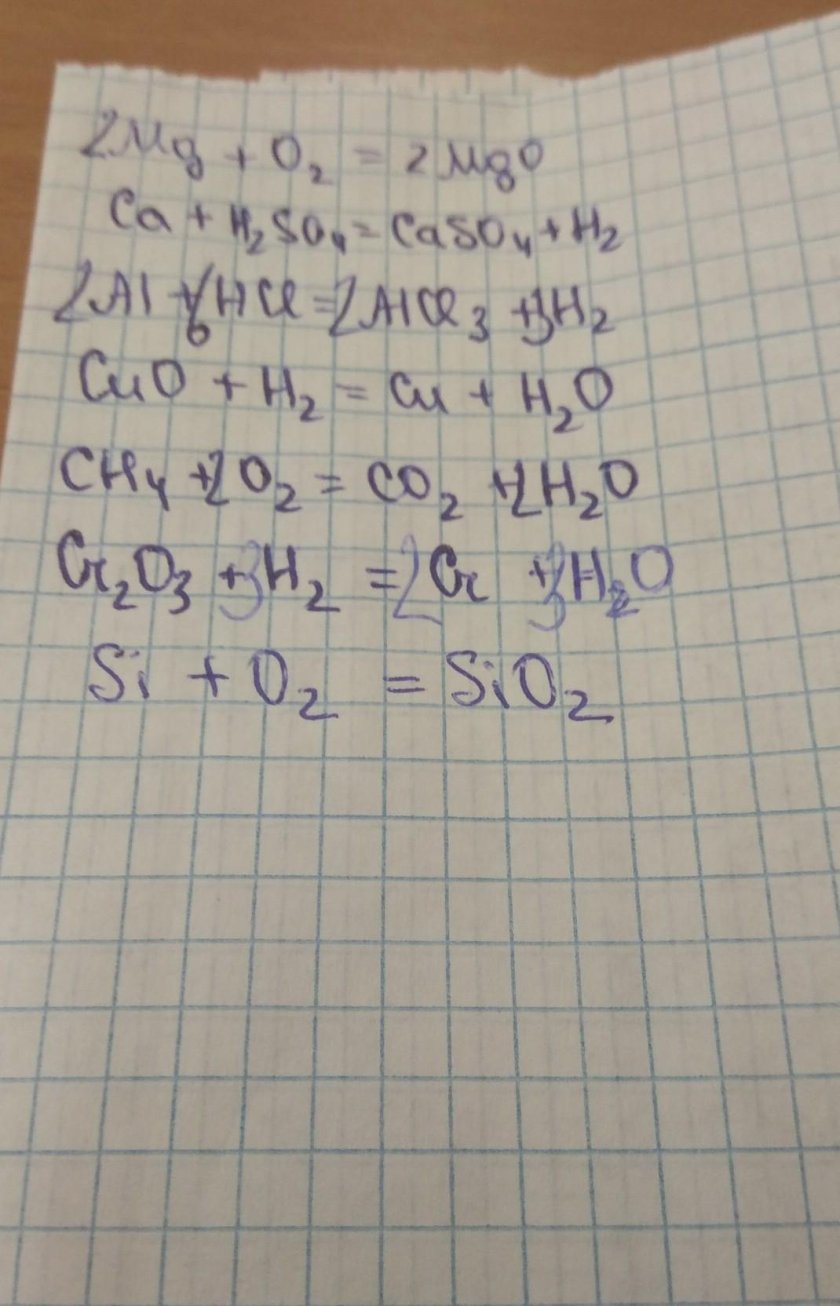 2Mg + O₂ = 2MgO
Ca + H₂SO₄ = CaSO₄ + H₂
2Al + 6HCl = 2AlCl₃ + 3H₂
CuO + H₂ = Cu + H₂O
CH₄ + 2O₂ = CO₂ + 2H₂O
Cr₂O₃ + 3H₂ = 2Cr + 3H₂O
Si + O₂ = SiO₂